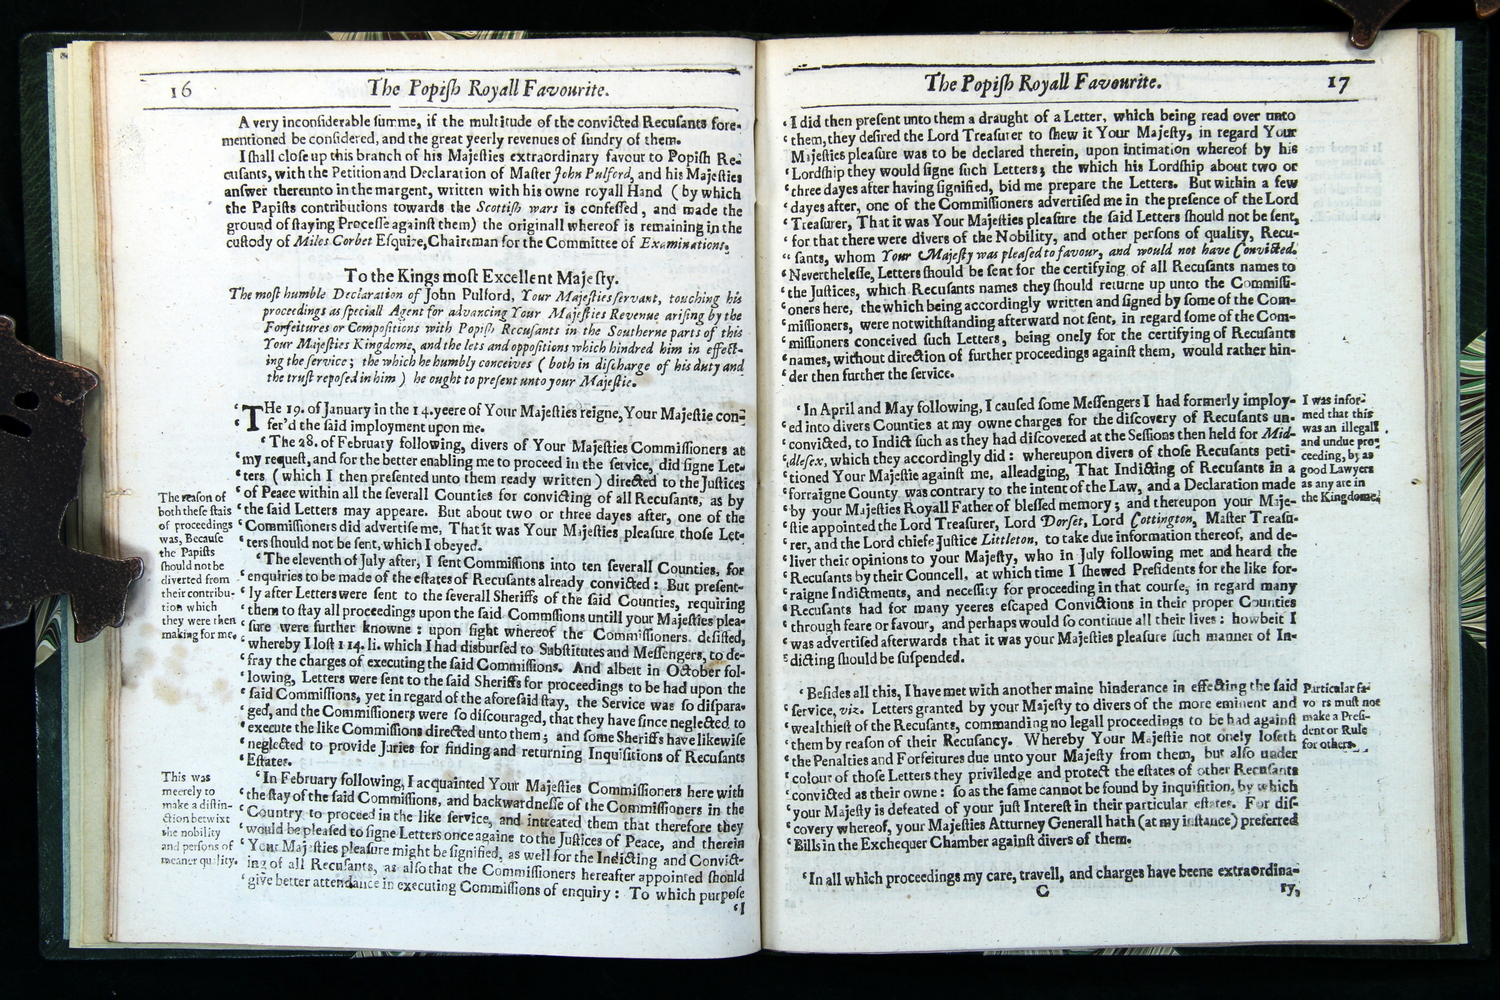 16
The Popiſh Royall Favourite.
A very inconſiderable ſumme, if the multitude of the convicted Recuſants fore-
mentioned be conſidered, and the great yeerly revenues of ſundry of them.
I ſhall cloſe up this branch of his Majeſties extraordinary favour to Popiſh Re-
cuſants, with the Petition and Declaration of Maſter John Pulford, and his Majeſties
anſwer thereunto in the margent, written with his owne royall Hand (by which
the Papiſts contributions towards the Scottiſh wars is confeſſed, and made the
ground of ſtaying Proceſſe againſt them) the originall whereof is remaining in the
cuſtody of Miles Corbet Eſquire, Chairman for the Committee of Examinations.
To the Kings moſt Excellent Majeſty.
The moſt humble Declaration of John Pulford, Your Majeſties ſervant, touching his
proceedings as ſpeciall Agent for advancing Your Majeſties Revenue ariſing by the
Forfeitures or Compoſitions with Popiſh Recuſants in the Southerne parts of this
Your Majeſties Kingdome, and the lets and oppoſitions which hindred him in effect-
ing the ſervice; the which he humbly conceives (both in diſcharge of his duty and
the truſt repoſed in him) he ought to preſent unto your Majeſtie.
‘THe 19. of January in the 14. yeere of Your Majeſties reigne, Your Majeſtie con-
‘fer'd the ſaid imployment upon me.
‘The 28. of February following, divers of Your Majeſties Commiſſioners at
‘my requeſt, and for the better enabling me to proceed in the ſervice, did ſigne Let-
‘ters (which I then preſented unto them ready written) directed to the Juſtices
‘of Peace within all the ſeverall Counties for convicting of all Recuſants, as by
‘the ſaid Letters may appeare. But about two or three dayes after, one of the
‘Commiſſioners did advertiſe me, That it was Your Majeſties pleaſure thoſe Let-
‘ters ſhould not be ſent, which I obeyed.
The reaſon of
both theſe ſtais
of proceedings
was, Becauſe
the Papiſts
ſhould not be
diverted from
their contribu-
tion which
they were then
making for me.
‘The eleventh of July after, I ſent Commiſſions into ten ſeverall Counties, for
‘enquiries to be made of the eſtates of Recuſants already convicted: But preſent-
‘ly after Letters were ſent to the ſeverall Sheriffs of the ſaid Counties, requiring
‘them to ſtay all proceedings upon the ſaid Commſſions untill your Majeſties plea-
‘ſure were further knowne: upon ſight whereof the Commiſſioners deſiſted,
‘whereby I loſt 114. li. which I had disburſed to Subſtitutes and Meſſengers, to de-
‘fray the charges of executing the ſaid Commiſſions. And albeit in October fol-
‘lowing, Letters were ſent to the ſaid Sheriffs for proceedings to be had upon the
‘ſaid Commiſſions, yet in regard of the aforeſaid ſtay, the Service was ſo diſpara-
‘ged, and the Commiſſioners were ſo diſcouraged, that they have ſince neglected to
‘execute the like Commiſſions directed unto them; and ſome Sheriffs have likewiſe
‘neglected to provide Juries for finding and returning Inquiſitions of Recuſants
‘Eſtates.
This was
meerely to
make a diſtin-
ction betwixt
the nobility
and perſons of
meaner quality.
‘In February following, I acquainted Your Majeſties Commiſſioners here with
‘the ſtay of the ſaid Commiſſions, and backwardneſſe of the Commiſſioners in the
‘Country to proceed in the like ſervice, and intreated them that therefore they
‘would be pleaſed to ſigne Letters once againe to the Juſtices of Peace, and therein
‘Your Majeſties pleaſure might be ſignified, as well for the Indicting and Convict-
‘ing of all Recuſants, as alſo that the Commiſſioners hereafter appointed ſhould
‘give better attendance in executing Commiſſions of enquiry: To which purpoſe
‘I
The Popiſh Royall Favourite.
17
‘I did then preſent unto them a draught of a Letter, which being read over unto
‘them, they deſired the Lord Treaſurer to ſhew it Your Majeſty, in regard Your
Majeſties pleaſure was to be declared therein, upon intimation whereof by his
‘Lordſhip they would ſigne ſuch Letters; the which his Lordſhip about two or
‘three dayes after having ſignified, bid me prepare the Letters. But within a few
‘dayes after, one of the Commiſſioners advertiſed me in the preſence of the Lord
‘Treaſurer, That it was Your Majeſties pleaſure the ſaid Letters ſhould not be ſent,
‘for that there were divers of the Nobility, and other perſons of quality, Recu-
“ſants, whom Your Majeſty was pleaſed to favour, and would not have Convicted.
‘Nevertheleſſe, Letters ſhould be ſent for the certifying of all Recuſants names to
‘the Juſtices, which Recuſants names they ſhould returne up unto the Commiſſi-
‘oners here, the which being accordingly written and ſigned by ſome of the Com-
‘miſſioners, were notwithſtanding afterward not ſent, in regard ſome of the Com-
‘miſſioners conceived ſuch Letters, being onely for the certifying of Recuſants
‘names, without direction of further proceedings againſt them, would rather hin-
‘der then further the ſervice.
‘In April and May following, I cauſed ſome Meſſengers I had formerly imploy-
‘ed into divers Counties at my owne charges for the diſcovery of Recuſants un-
‘convicted, to Indict ſuch as they had diſcovered at the Seſſions then held for Mid-
‘dleſex, which they accordingly did: whereupon divers of thoſe Recuſants peti-
‘tioned Your Majeſtie againſt me, alleadging, That Indicting of Recuſants in a
‘forraigne County was contrary to the intent of the Law, and a Declaration made
‘by your Majeſties Royall Father of bleſſed memory; and thereupon your Maje-
‘ſtie appointed the Lord Treaſurer, Lord Dorſet, Lord Cottington, Maſter Treaſu-
‘rer, and the Lord chiefe Juſtice Littleton, to take due information thereof, and de-
‘liver their opinions to your Majeſty, who in July following met and heard the
‘Recuſants by their Councell, at which time I ſhewed Preſidents for the like for-
‘raigne Indictments, and neceſſity for proceeding in that courſe, in regard many
‘Recuſants had for many yeeres eſcaped Convictions in their proper Counties
‘through feare or favour, and perhaps would ſo continue all their lives: howbeit I
‘was advertiſed afterwards that it was your Majeſties pleaſure ſuch manner of In-
‘dicting ſhould be ſuſpended.
I was infor-
med that this
was an illegall
and undue pro-
ceeding, by as
good Lawyers
as any are in
the Kingdome.
‘Beſides all this, I have met with another maine hinderance in effecting the ſaid
‘ſervice, viz. Letters granted by your Majeſty to divers of the more eminent and
‘wealthieſt of the Recuſants, commanding no legall proceedings to be had againſt
‘them by reaſon of their Recuſancy. Whereby Your Majeſtie not onely loſeth
‘the Penalties and Forfeitures due unto your Majeſty from them, but alſo under
‘colour of thoſe Letters they priviledge and protect the eſtates of other Recuſants
‘convicted as their owne: ſo as the ſame cannot be found by inquiſition, by which
‘your Majeſty is defeated of your juſt Intereſt in their particular eſtates. For diſ-
‘covery whereof, your Majeſties Atturney Generall hath (at my inſtance) preferred
‘Bills in the Exchequer Chamber againſt divers of them.
Particular fa-
vo rs muſt not
make a Preſi-
dent or Rule
for others.
‘In all which proceedings my care, travell, and charges have beene extraordina-
C
ry,